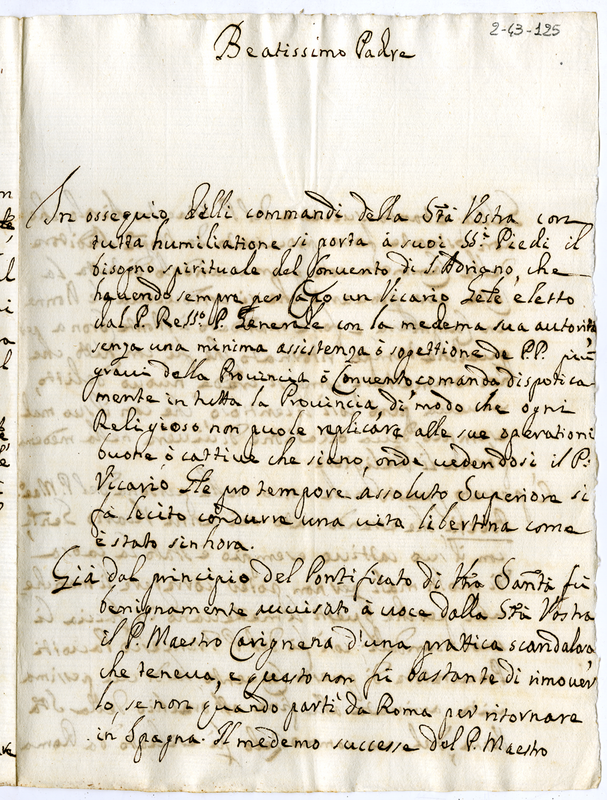 2-43-125
Beatissimo Padre
In ossequio delli commandi della Stà Vostra con
tutta humiliatione si porta à suoi SS.i Piedi il
bisogno spirituale del Convento di S. Adriano, che
havendo sempre per Capo un Vicario Gen̄le eletto
dal P. Ress.o P. Generale con la medema sua autorità
senza una minima assistenza ò sogettione de P.P. più
gravi della Provincia ò Convento comanda dispotica-
mente in tutta la Provincia, di modo che ogni
Religioso non puole replicare alle sue operationi
buone, ò cattive che siano, onde vedendosi il P.
Vicario Gle pro tempore assoluto Superiore si
fà lecito condurre una vita libertina come
è stato sin hora.
Già dal principio del Pontificato di Vrà Santà fù
benignamente avvisato à voce dalla Stà Vostra
il P. Maestro Carignena d'una prattica scandalosa
che teneva, e questo non fù bastante di rimover
lo, se non quando partì da Roma per ritornare
in Spagna. Il medemo successe del P. Maestro